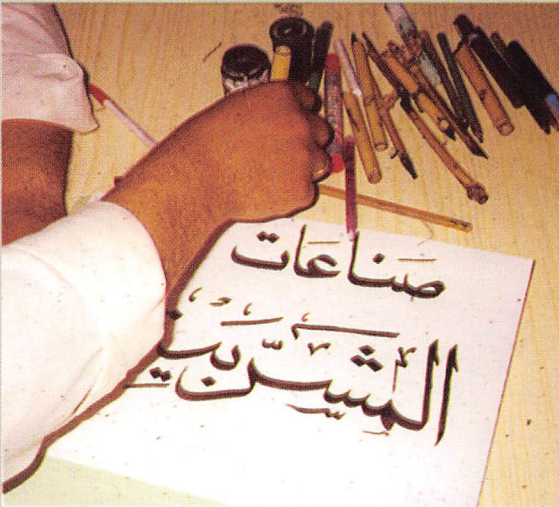 صَناعَات
المشرّبيـ